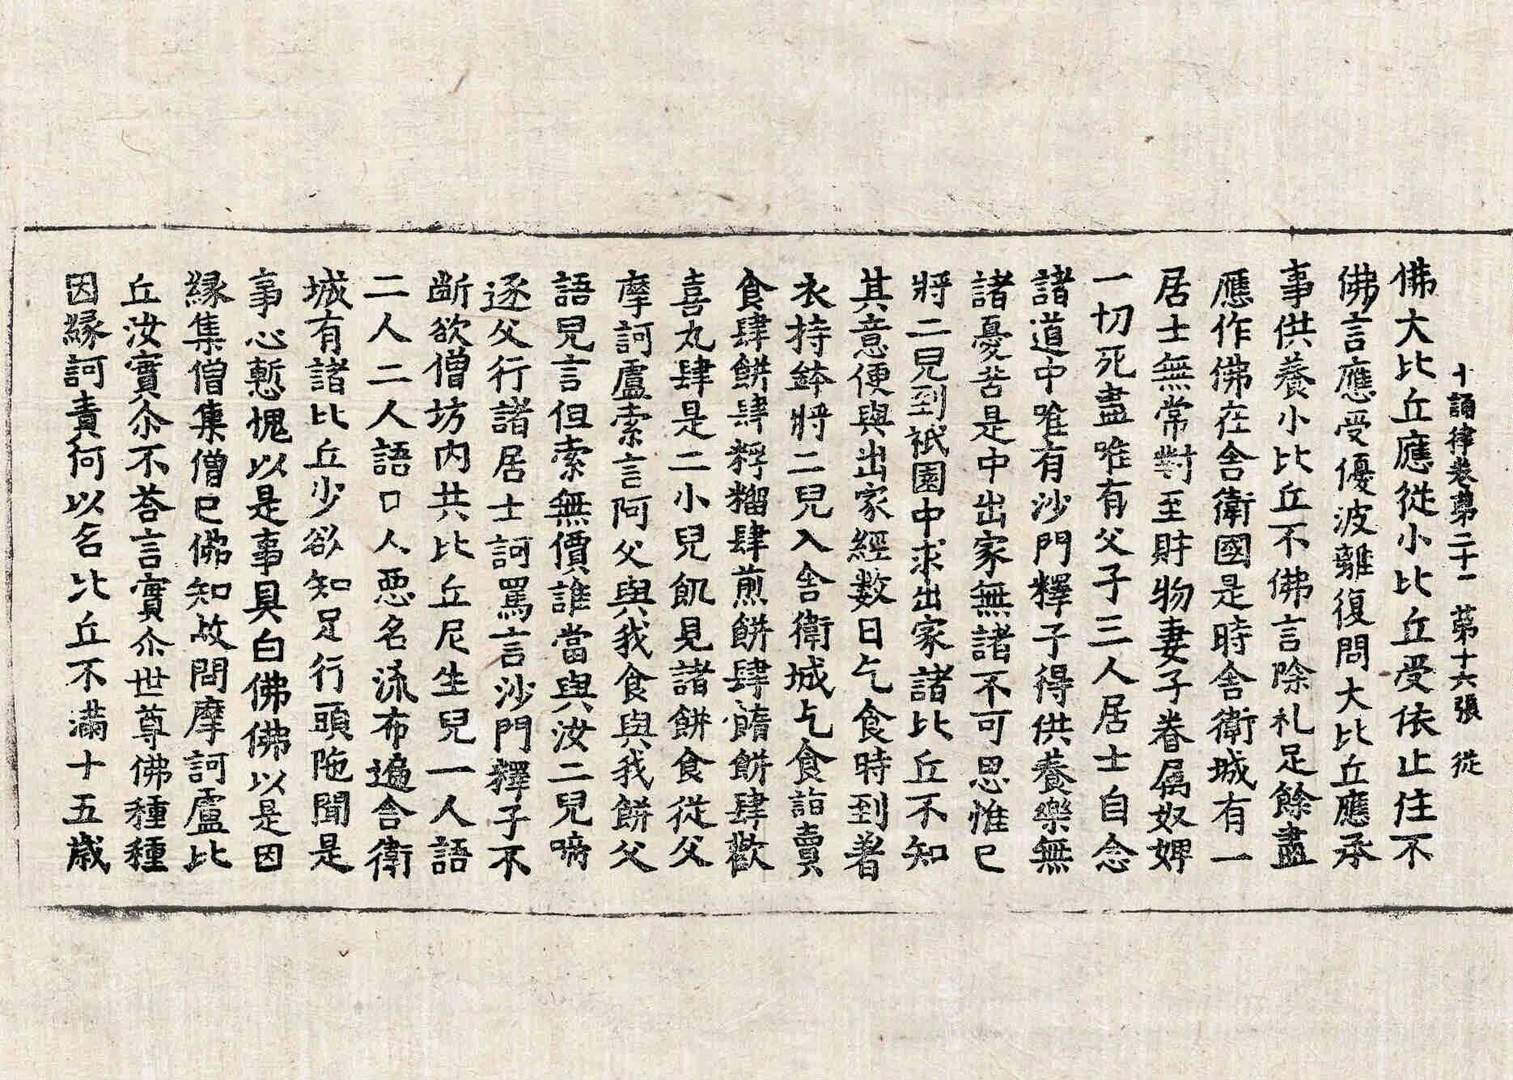 十誦律卷第二十一　第十六張　従
佛大比丘應從小比丘受依止住不
佛言應受優波離復問大比丘應承
事供養小比丘不佛言除礼足餘盡
應作佛在舍衛國是時舍衛城有一
居士無常對至財物妻子眷属奴婢
一切死盡唯有父子三人居士自念
諸道中唯有沙門釋子得供養樂無
諸憂苦是中出家無諸不可思惟已
將二兒到祇園中求出家諸比丘不知
其意便與出家經數日乞食時到著
衣持鉢將二兒入舍衛城乞食詣賣
食肆餅肆粰䊩肆煎餅肆䭉餅肆歡
喜丸肆是二小兒飢見諸餅食從父
摩訶盧索言阿父與我食與我餅父
語兒言但索無價誰當與汝二兒啼
逐父行諸居士訶罵言沙門釋子不
断欲僧坊内共比丘尼生兒一人語
二人二人語口人惡名流布遍舍衛
城有諸比丘少欲知足行頭陁聞是
事心慙愧以是事具白佛佛以是因
縁集僧集僧已佛知故問摩訶盧比
丘汝實尒不荅言實尒世尊佛種種
因縁訶責何以名比丘不滿十五歲